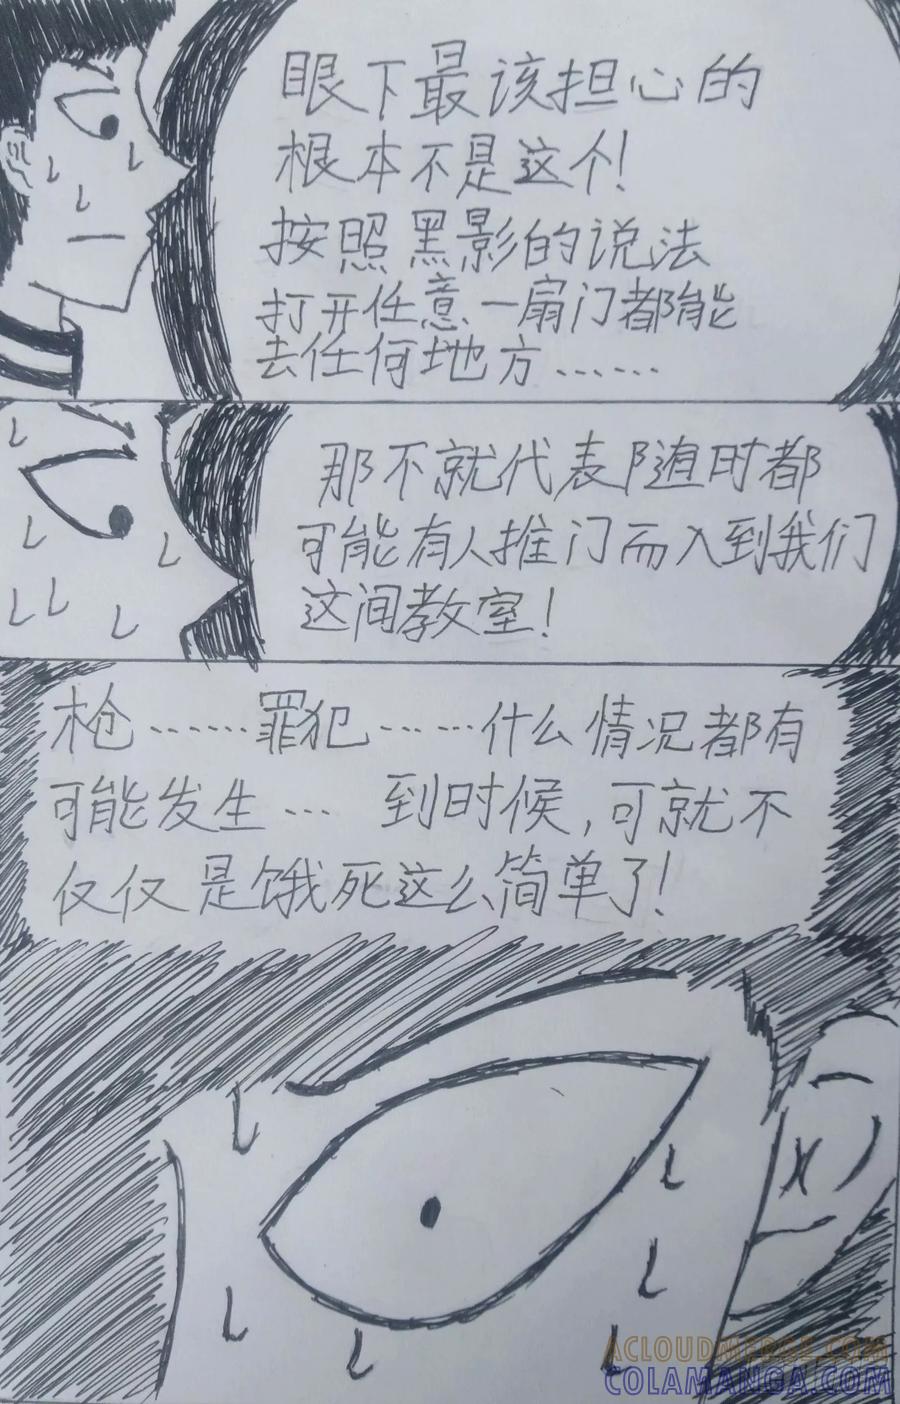 眼下最该担心的
根本不是这个!
按照黑影的说法
打开任意一扇门都能
去任何地方……
那不就代表随时都
可能有人推门而入到我们
这间教室!
枪……罪犯……什么情况都有
可能发生… 到时候,可就不
仅仅是饿死这么简单了!
ACLOUDMERGE.COM
COLAMANGA.COM